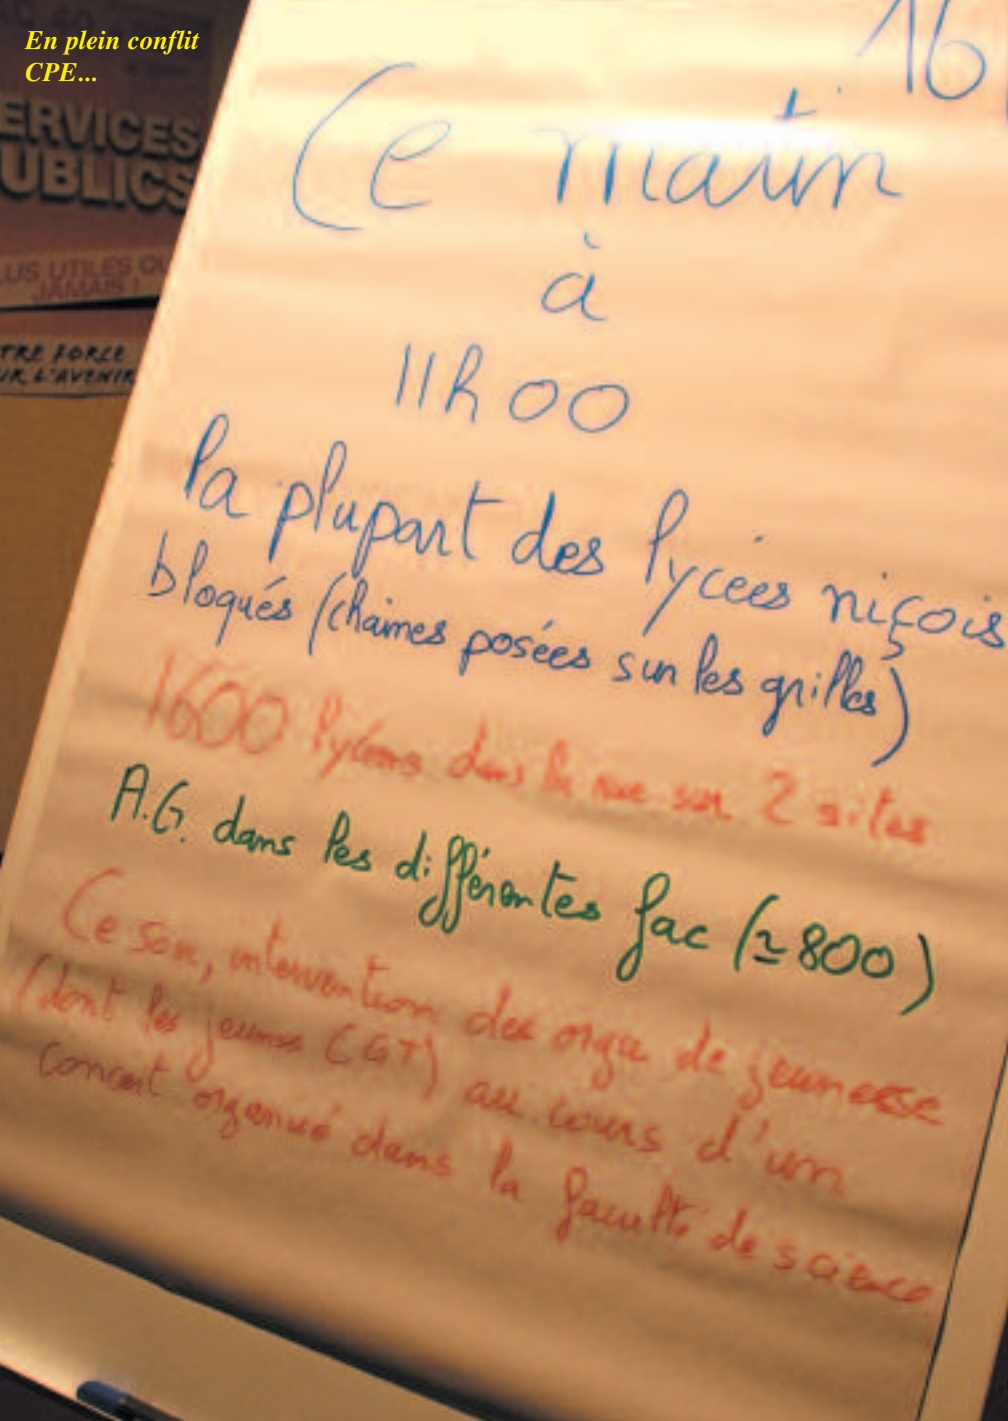 En plein conflit
CPE...
ERVICES
UBLICS
LUS UTILES QU
JAMAIS !
TRE FORCE
UR L'AVENIR
16
Ce matin
à
11h00
la plupart des lycées niçois
bloqués (chaines posées sur les grilles)
1600 lycéens dans la rue sur 2 sites
A.G. dans les différentes fac (≃800)
Ce soir, intervention des orga de jeunesse
(dont les jeunes CGT) au cours d'un
concert organisé dans la faculté de science